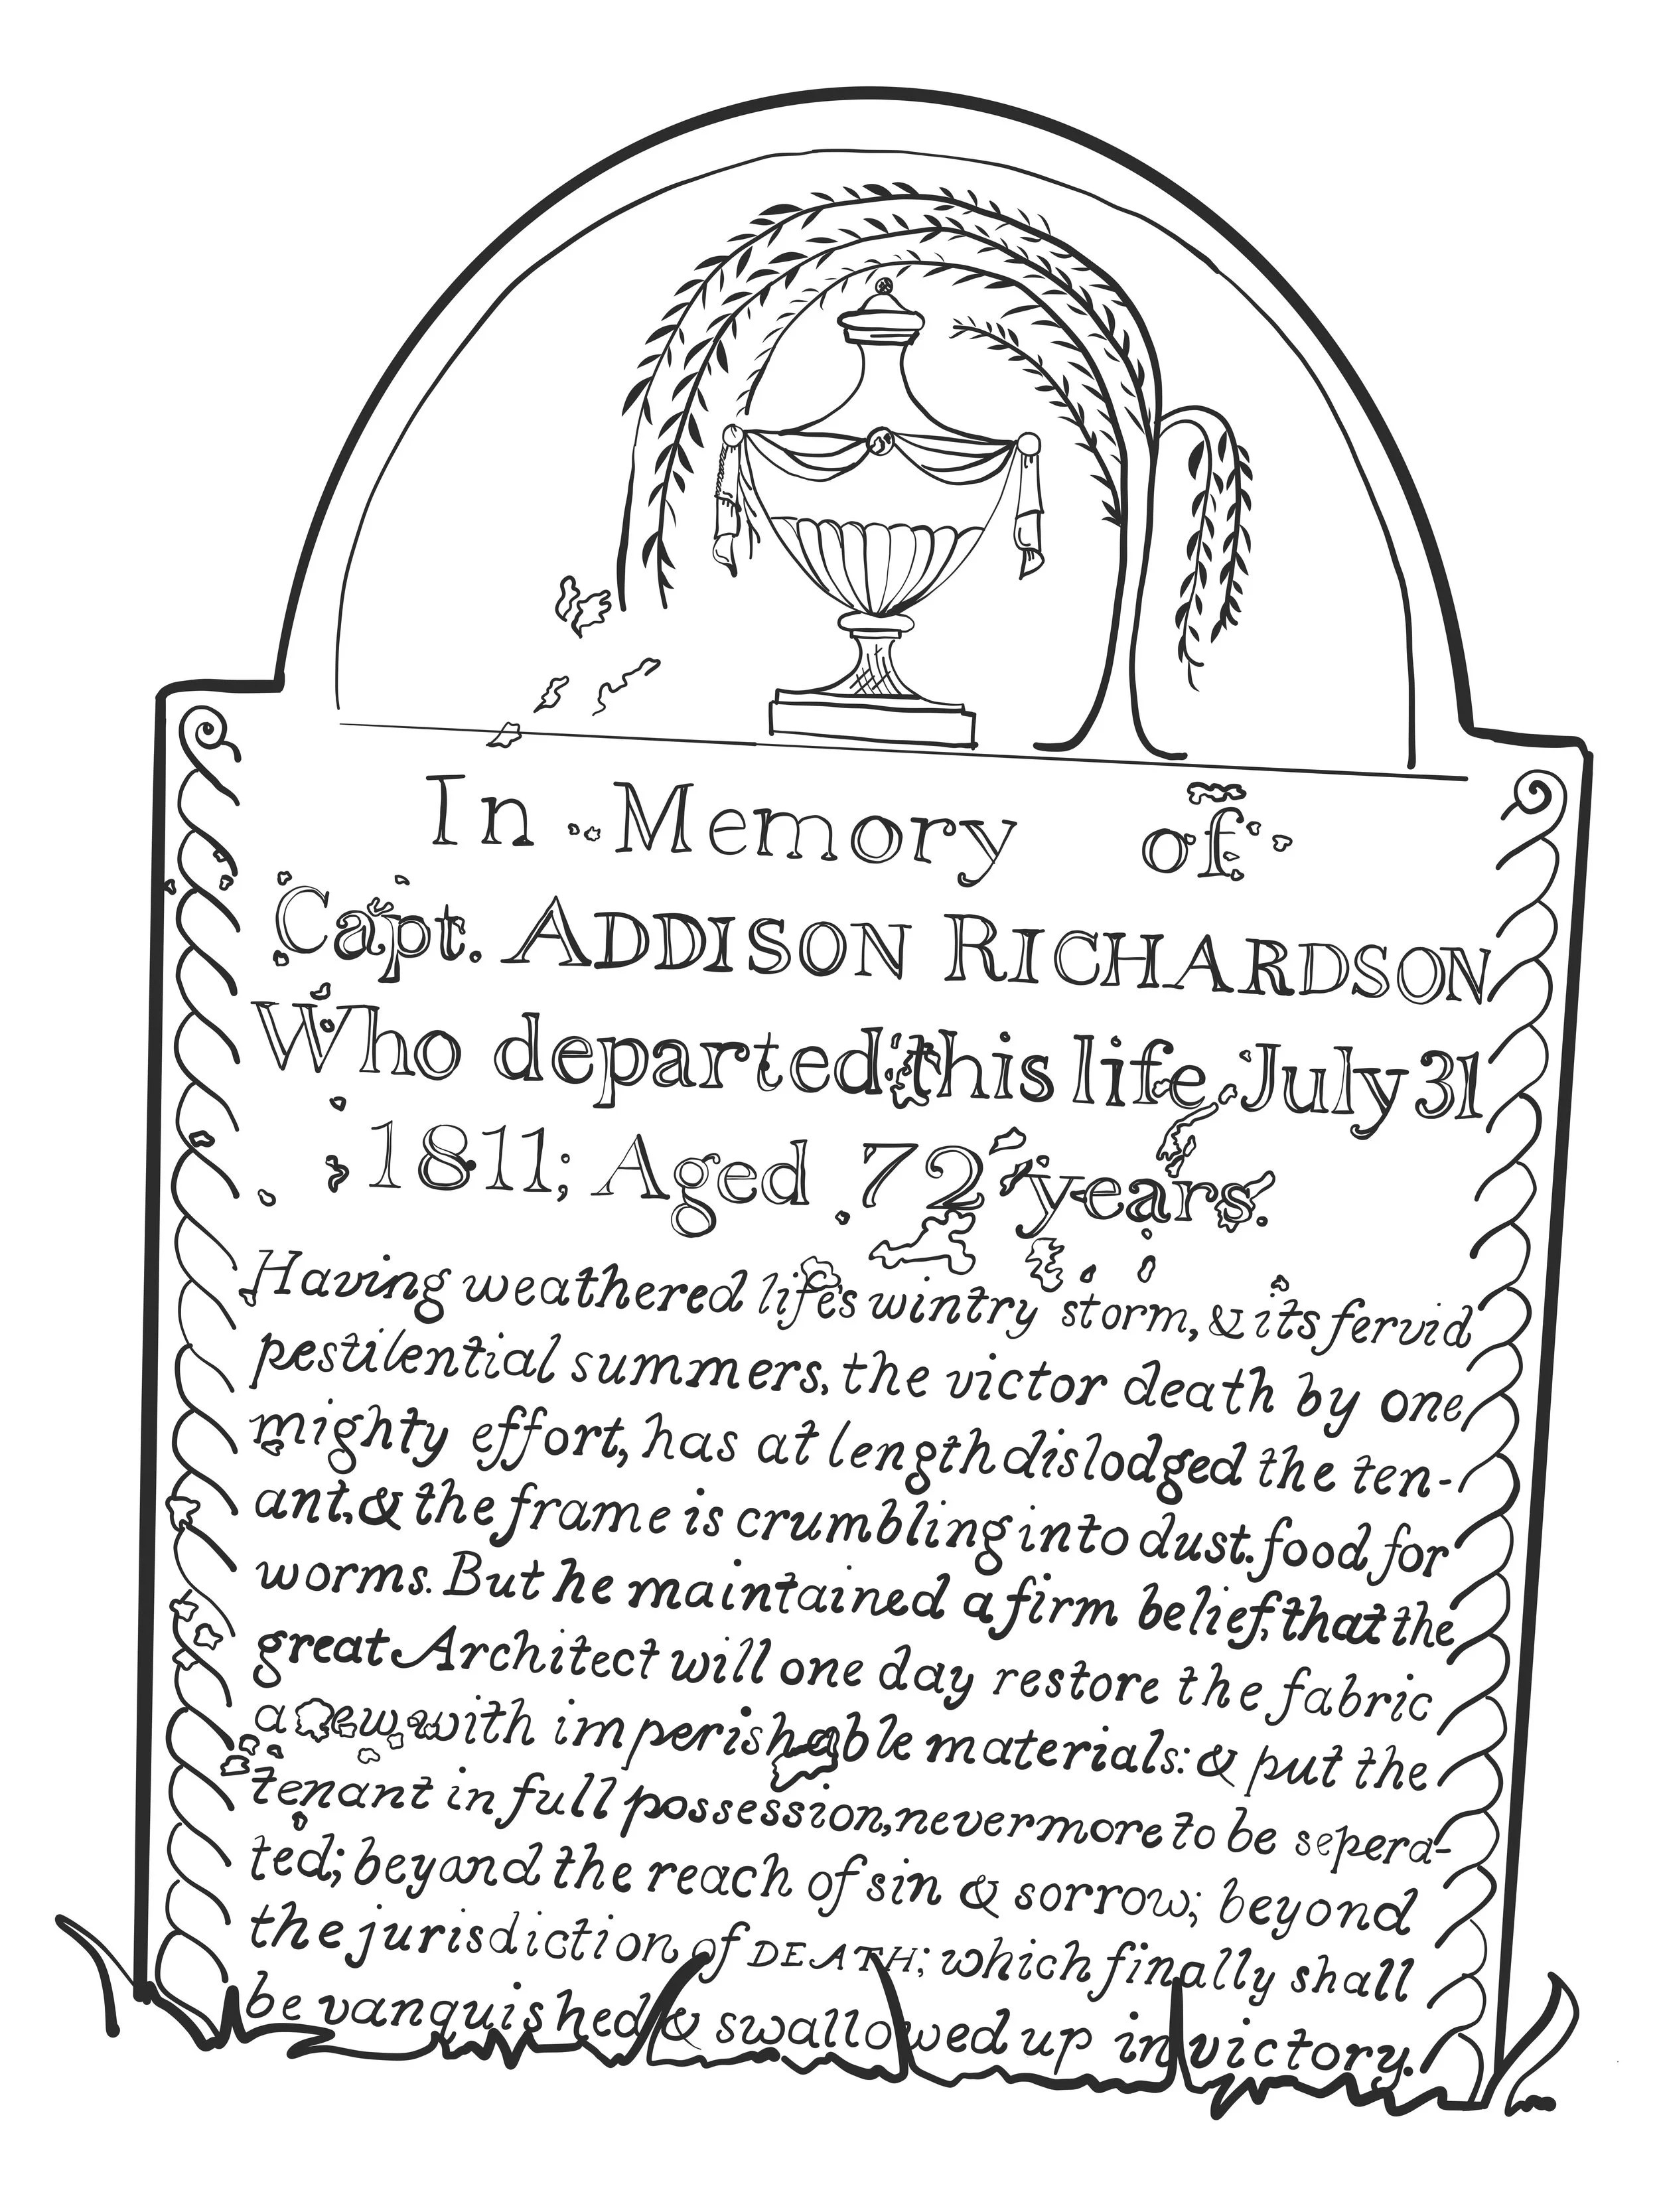 In Memory of
Capt. ADDISON RICHARDSON
Who departed this life July 31
1811; Aged 72 years.
Having weathered life's wintry storm, & its fervid
pestilential summers, the victor death by one
mighty effort, has at length dislodged the ten-
ant, & the frame is crumbling into dust. food for
worms. But he maintained a firm belief, that the
great Architect will one day restore the fabric
anew with imperishable materials: & put the
tenant in full possession, nevermore to be sepera-
ted; beyond the reach of sin & sorrow; beyond
the jurisdiction of DEATH; which finally shall
be vanquished & swallowed up in victory.